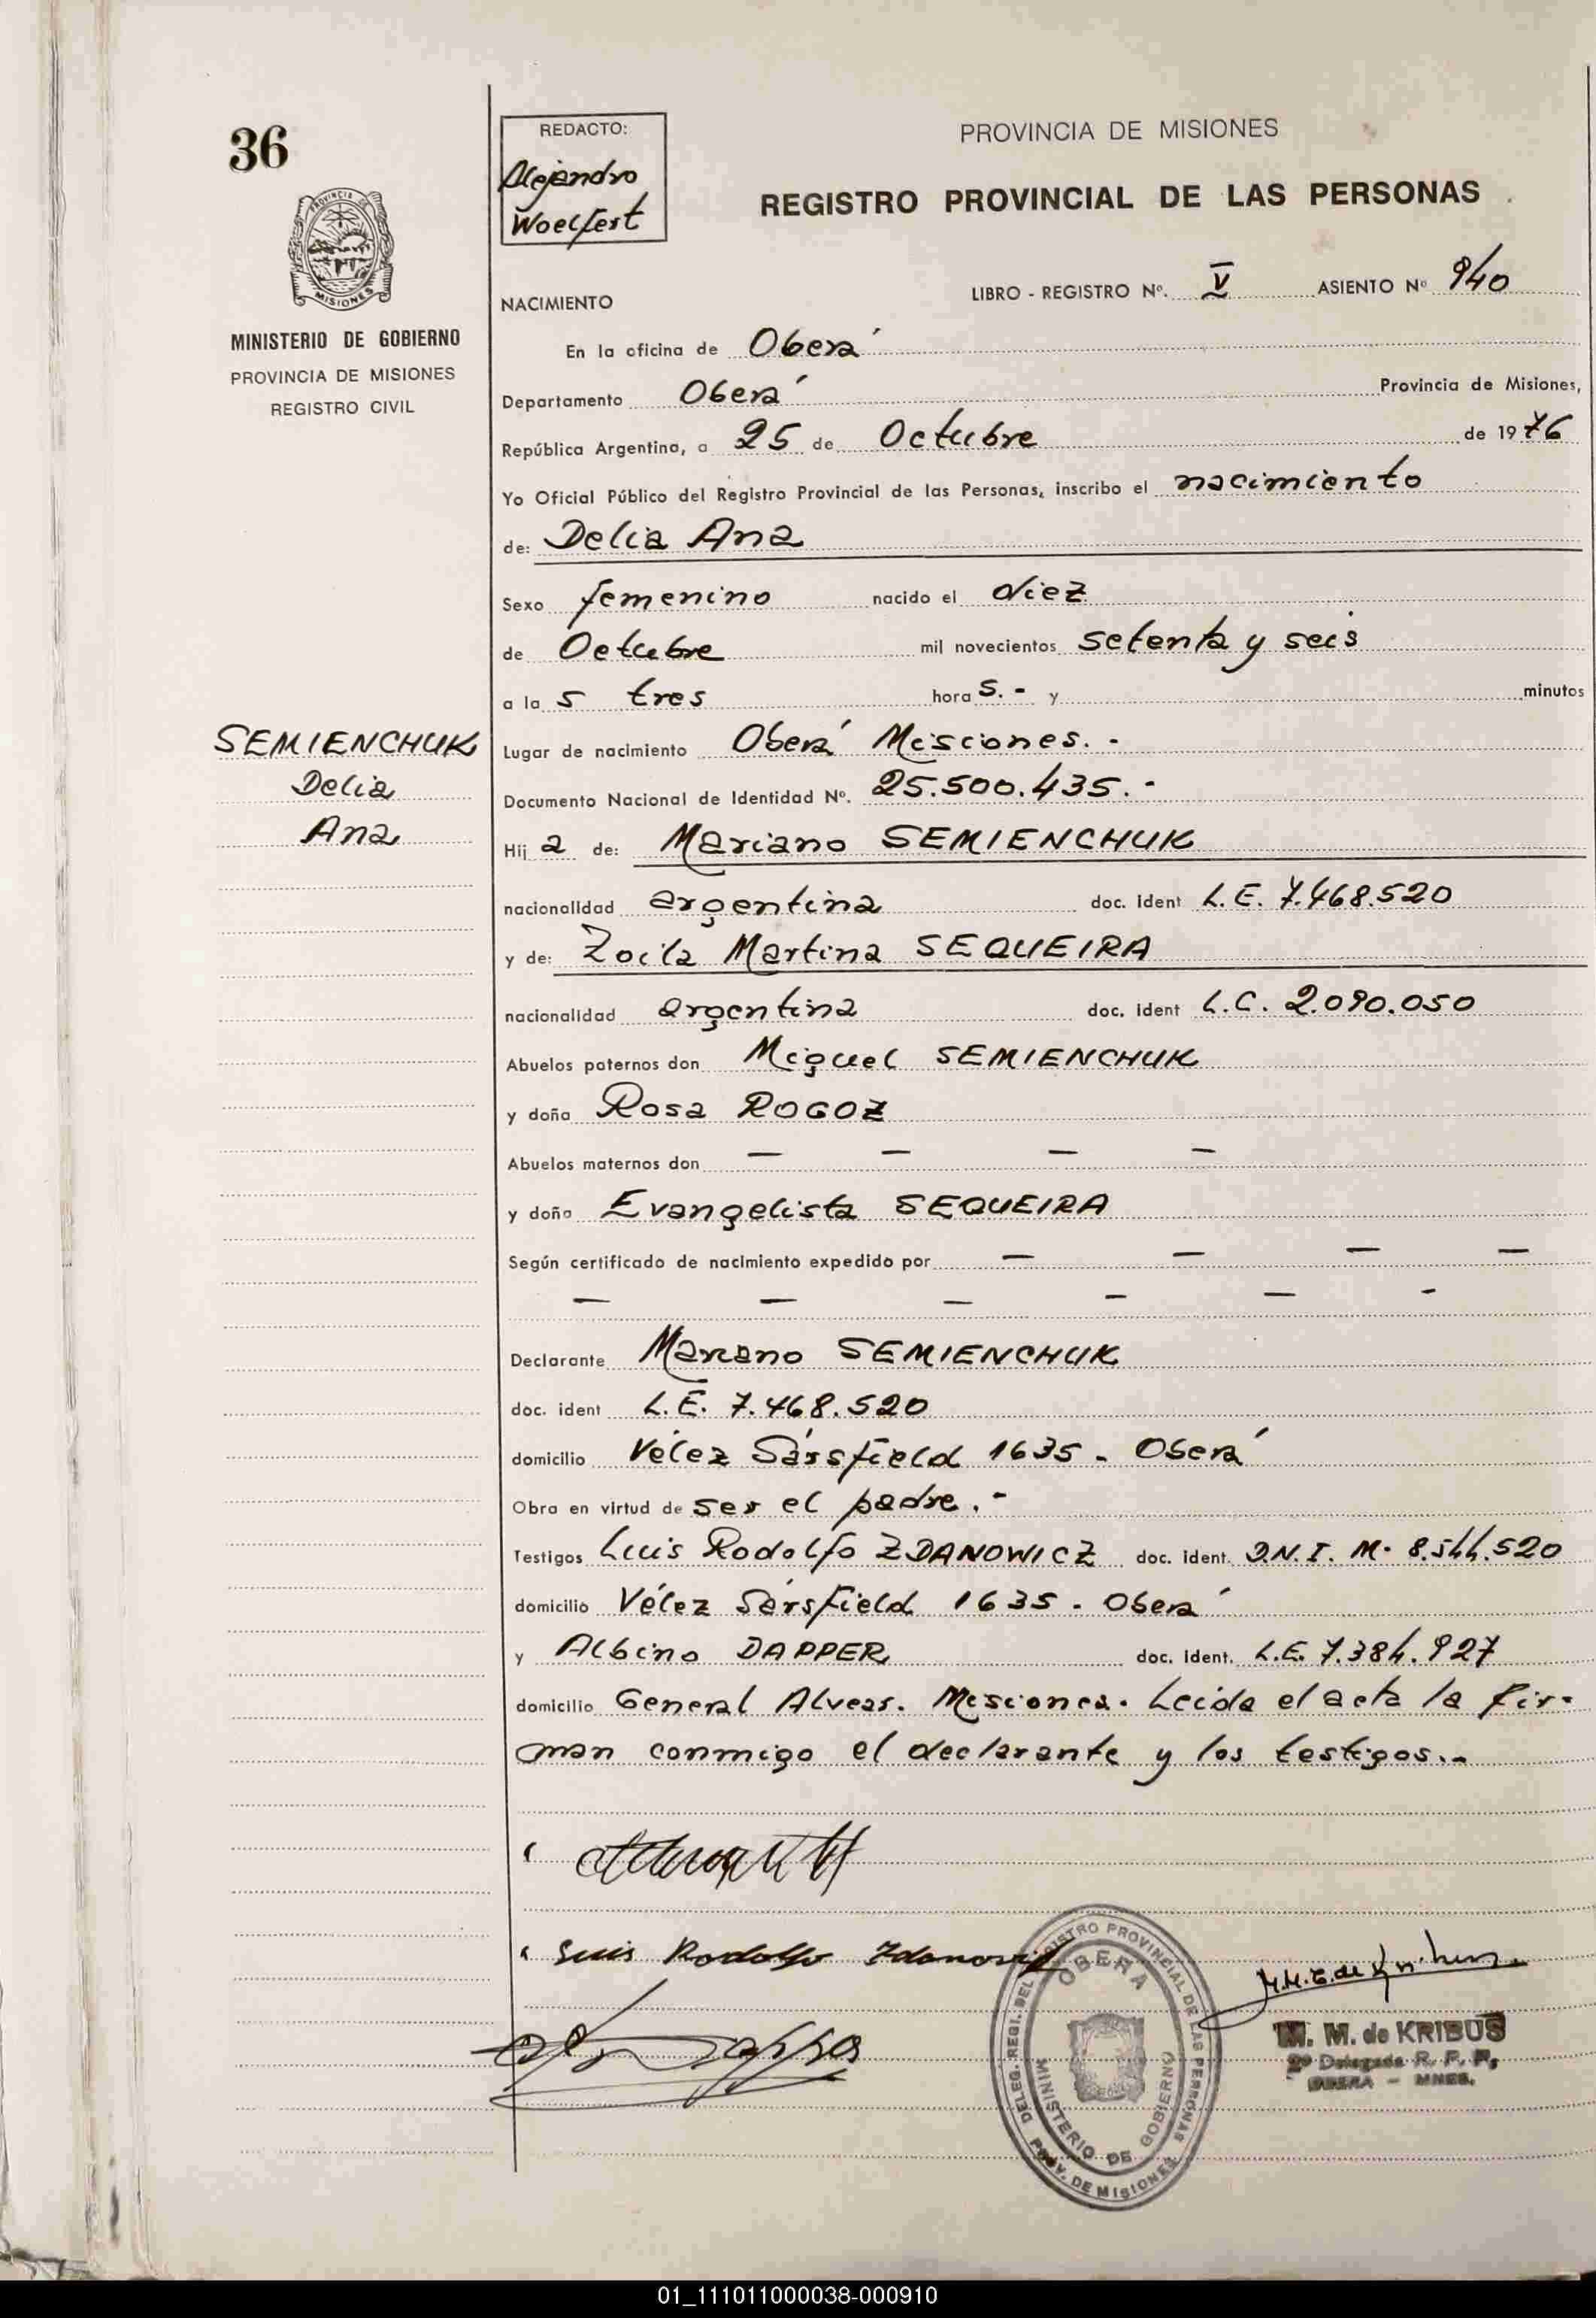 36
PROVINCIA DE MISIONES
MINISTERIO DE GOBIERNO
PROVINCIA DE MISIONES
REGISTRO CIVIL
REDACTO:
Alejandro
Woelfert
PROVINCIA DE MISIONES
REGISTRO PROVINCIAL DE LAS PERSONAS
LIBRO - REGISTRO Nº. V ASIENTO Nº 940
NACIMIENTO
En la oficina de Oberá
Departamento Oberá Provincia de Misiones,
República Argentina, a 25 de Octubre de 1976
Yo Oficial Público del Registro Provincial de las Personas, inscribo el nacimiento
de: Delia Ana
Sexo femenino nacido el diez
de Octubre mil novecientos setenta y seis
a la s tres hora s. - y minutos
SEMIENCHUK
Delia
Ana
Lugar de nacimiento Oberá Misiones. -
Documento Nacional de Identidad Nº. 25.500.435. -
Hij a de: Mariano SEMIENCHUK
nacionalidad argentina doc. ident L.E. 7.468.520
y de: Zoila Martina SEQUEIRA
nacionalidad argentina doc. ident L.C. 2.090.050
Abuelos paternos don Miguel SEMIENCHUK
y doña Rosa ROGOZ
Abuelos maternos don — — — —
y doña Evangelista SEQUEIRA
Según certificado de nacimiento expedido por — — — —
— — — — — -
Declarante Mariano SEMIENCHUK
doc. ident L.E. 7.468.520
domicilio Vélez Sársfield 1635 - Oberá
Obra en virtud de ser el padre. -
Testigos Luis Rodolfo ZDANOWICZ doc. ident. D.N.I. M. 8.544.520
domicilio Vélez Sársfield 1635 - Oberá
y Albino DAPPER doc. ident. L.E. 7.384.927
domicilio General Alvear. Misiones. Leida el acta la fir-
man conmigo el declarante y los testigos. -
Luis Rodolfo Zdanovicz
DELEG. REGI. DEL REGISTRO PROVINCIAL DE LAS PERSONAS
OBERA
MINISTERIO DE GOBIERNO
PROV. DE MISIONES
M. M. de KRIBUS
2º Delegada R. P. P.
OBERA - MNES.
01_111011000038-000910